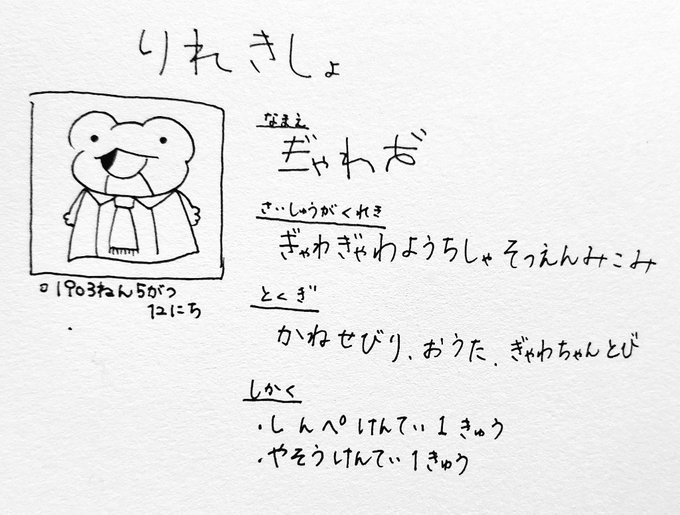 りれきしょ
なまえ
ぎゃわお
さいしゅうがくれき
ぎゃわぎゃわようちしゃそつえんみこみ
とくぎ
かねせびり、おうた、ぎゃわちゃんとび
1903ねん5がつ
12にち
しかく
・しんぺけんてい1きゅう
・やそうけんてい1きゅう